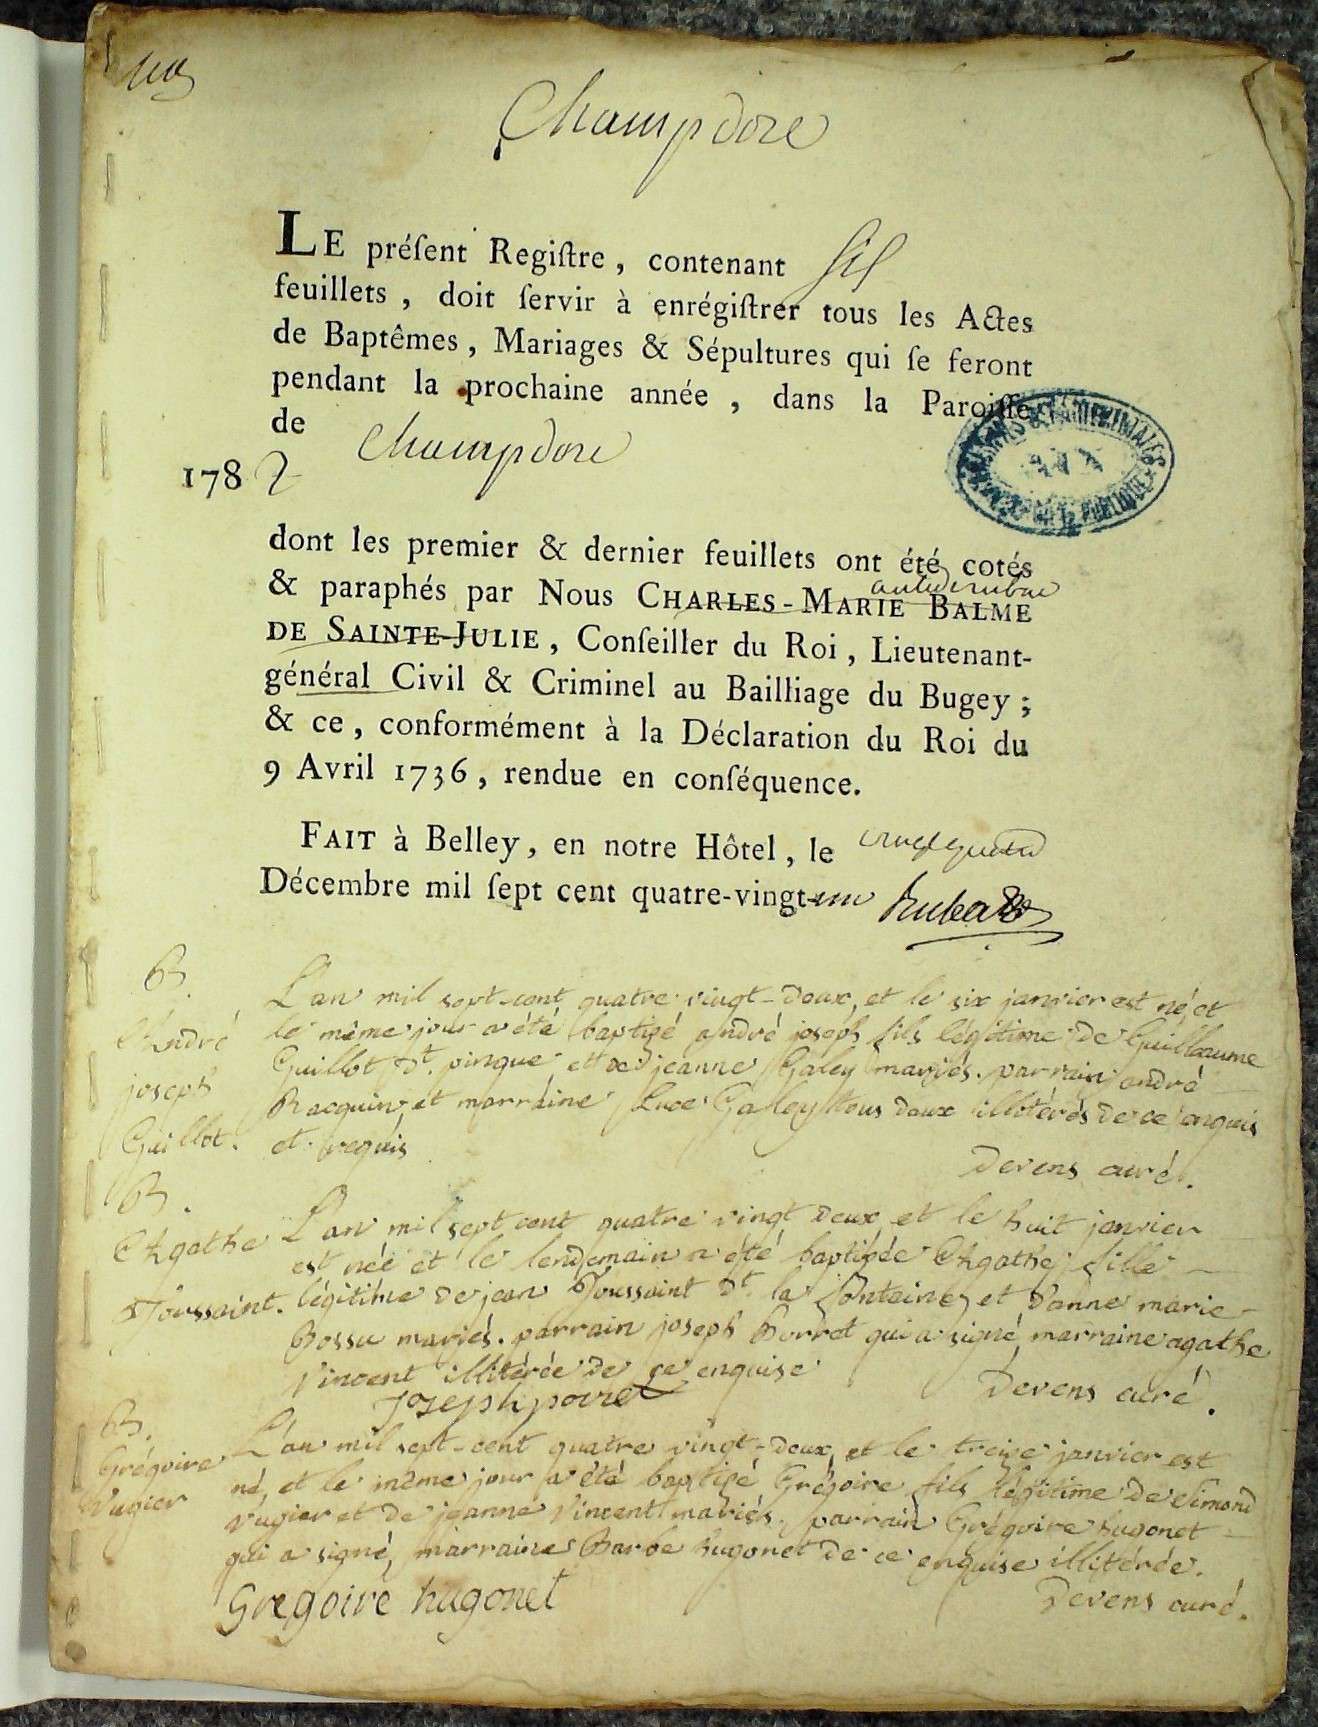 Champdore
LE préſent Regiſtre, contenant six
feuillets, doit ſervir à enrégiſtrer tous les Actes
de Baptêmes, Mariages & Sépultures qui ſe feront
pendant la prochaine année, dans la Paroiſſe
de Champdore
1782
dont les premier & dernier feuillets ont été cotés
& paraphés par Nous CHARLES-MARIE BALME
DE SAINTE-JULIE, Conſeiller du Roi, Lieutenant-
général Civil & Criminel au Bailliage du Bugey;
& ce, conformément à la Déclaration du Roi du
9 Avril 1736, rendue en conſéquence.
FAIT à Belley, en notre Hôtel, le
Décembre mil ſept cent quatre-vingt-un
B.
André
joseph
Guillot.
L'an mil sept-cent quatre vingt-deux, et le six janvier est né, et
le même jour a été baptizé andré joseph fils légitime de Guillaume
Guillot dt. pingue et de jeanne Galey mariés. parrain andré
Racquin, et marraine Luce Galey tous deux illitérés de ce enquis
et requis
Devens curé.
B.
Agathe
Toussaint.
L'an mil sept cent quatre vingt deux et le huit janvier
est née et le lendemain a été baptizée Agathe fille
légitime de jean Toussaint dt. la fontaine, et d'anne marie
Bossu mariés. parrain joseph Borret qui a signé, marraine agathe
Vincent illitérée de ce enquise
joseph poiret
Devens curé.
B.
Grégoire
Vugier
L'an mil sept-cent quatre vingt-deux, et le treize janvier est
né, et le même jour a été baptizé Grégoire fils légitime de Simond
Vugier et de jeanne Vincent mariés. parrain Grégoire hugonet
qui a signé, marraine Barbe hugonet de ce enquise illitérée.
Gregoire hugonet
Devens curé.